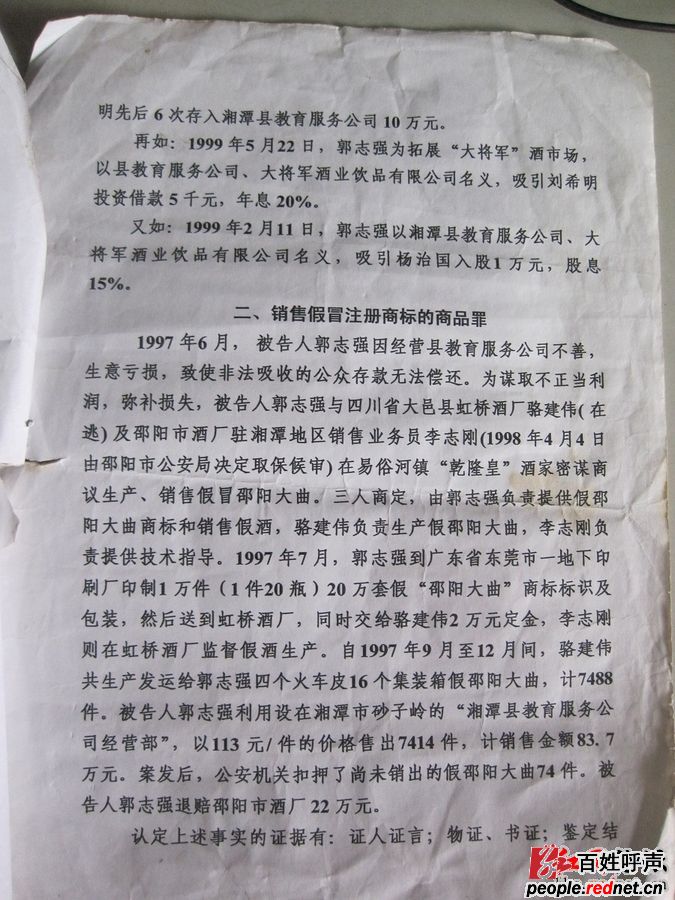 明先后6次存入湘潭县教育服务公司10万元。
再如：1999年5月22日，郭志强为拓展“大将军”酒市场，
以县教育服务公司、大将军酒业饮品有限公司名义，吸引刘希明
投资借款5千元，年息20%。
又如：1999年2月11日，郭志强以湘潭县教育服务公司、大
将军酒业饮品有限公司名义，吸引杨治国入股1万元，股息
15%。
二、销售假冒注册商标的商品罪
1997年6月，被告人郭志强因经营县教育服务公司不善，
生意亏损，致使非法吸收的公众存款无法偿还。为谋取不正当利
润，弥补损失，被告人郭志强与四川省大邑县虹桥酒厂骆建伟(在
逃)及邵阳市酒厂驻湘潭地区销售业务员李志刚(1998年4月4日
由邵阳市公安局决定取保候审)在易俗河镇“乾隆皇”酒家密谋商
议生产、销售假冒邵阳大曲。三人商定，由郭志强负责提供假邵
阳大曲商标和销售假酒，骆建伟负责生产假邵阳大曲，李志刚负
责提供技术指导。1997年7月，郭志强到广东省东莞市一地下印
刷厂印制1万件（1件20瓶）20万套假“邵阳大曲”商标标识及
包装，然后送到虹桥酒厂，同时交给骆建伟2万元定金，李志刚
则在虹桥酒厂监督假酒生产。自1997年9月至12月间，骆建伟
共生产发运给郭志强四个火车皮16个集装箱假邵阳大曲，计7488
件。被告人郭志强利用设在湘潭市砂子岭的“湘潭县教育服务公
司经营部”，以113元/件的价格售出7414件，计销售金额83.7
万元。案发后，公安机关扣押了尚未销出的假邵阳大曲74件。被
告人郭志强退赔邵阳市酒厂22万元。
认定上述事实的证据有：证人证言；物证、书证；鉴定结
百姓呼声
people.rednet.cn